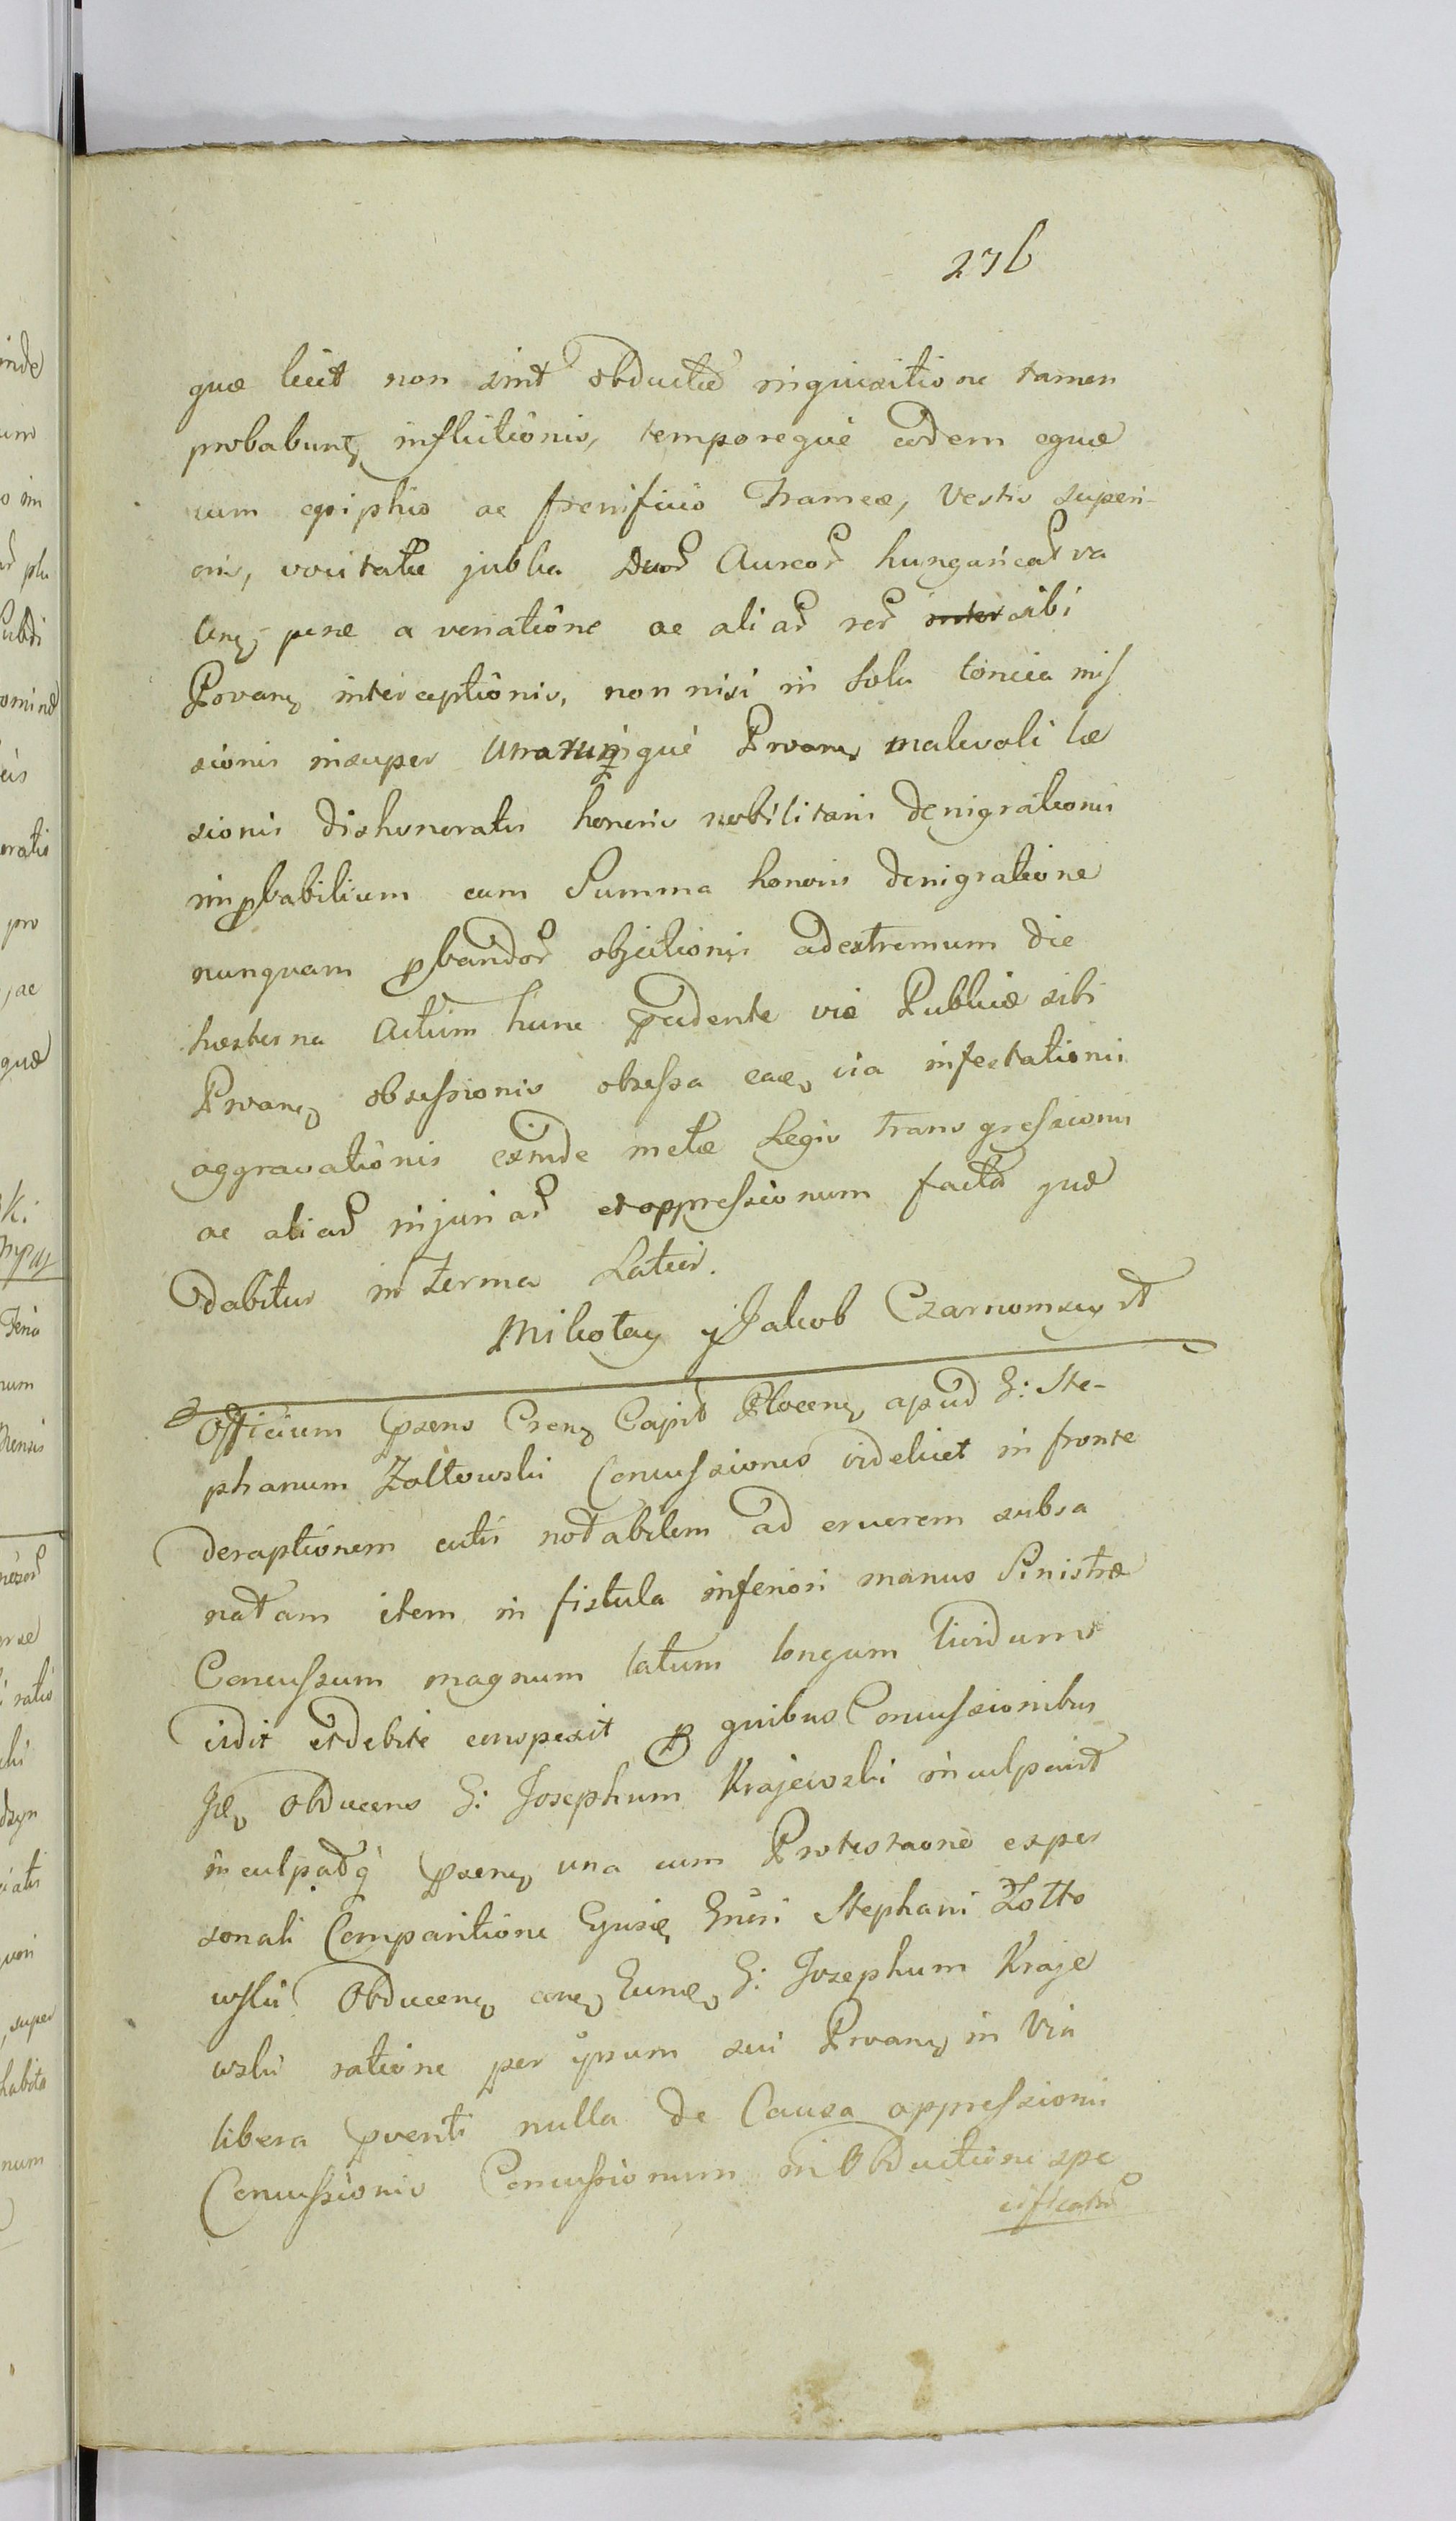 276
quæ licet non sint obductæ inquisitione tamen
probabunt, inflictionis, temporequè eodem equæ
cum epiphio ac frenificio Frameæ, Vestis superi-
oris, vocitatæ jubka Duor Aureor hungaricar va
len, pene a venatione ac aliar rer inter sibi
Prvan, interceptionis, non nisi in sola loricia mis
sionis insuper què Prvan, malevoli læ
sionis dishonoratis honoris nobilitaris denigrationis
improbabilium cum Summa honoris denigratione
nunquam probandor objectionis ad extremum die
hesterna Actum hunc præcedente viæ Publicæ sibi
Prvan, obsessionis obsessa eaq, via infestationis
aggravationis exinde metæ Legis transgressionis
ac aliar injuriar et oppressionum facta quæ
dabitur in Terma Latior.
Mikołay y Jakob Czarnomscy
Officium præsens Cren, Capit Plocen, apud G: Ste-
phanum Zołtowski Concussiones videlicet in fronte
deraptionem cutis notabilem ad cruorem subsa
natam item in fistula inferiori manus Sinistræ
Concussum magnum latum longum lividum
vidit et debite conspexit pro quibus Concussionibus
Iæ, obducens G: Josephum Krajewski inculpavit
inculpatq præsen, una cum Protestaone exper
sonali Comparitione Ejusd, Gnesi Stephani Zołto
wski Obducen, con, Eund, G: Josephum Kraje
wski ratione per ipsum sui Prvan, in Via
libera pventi nulla de Causa oppressionis
Concussionis Concussionum in Obductione spe
cificatar